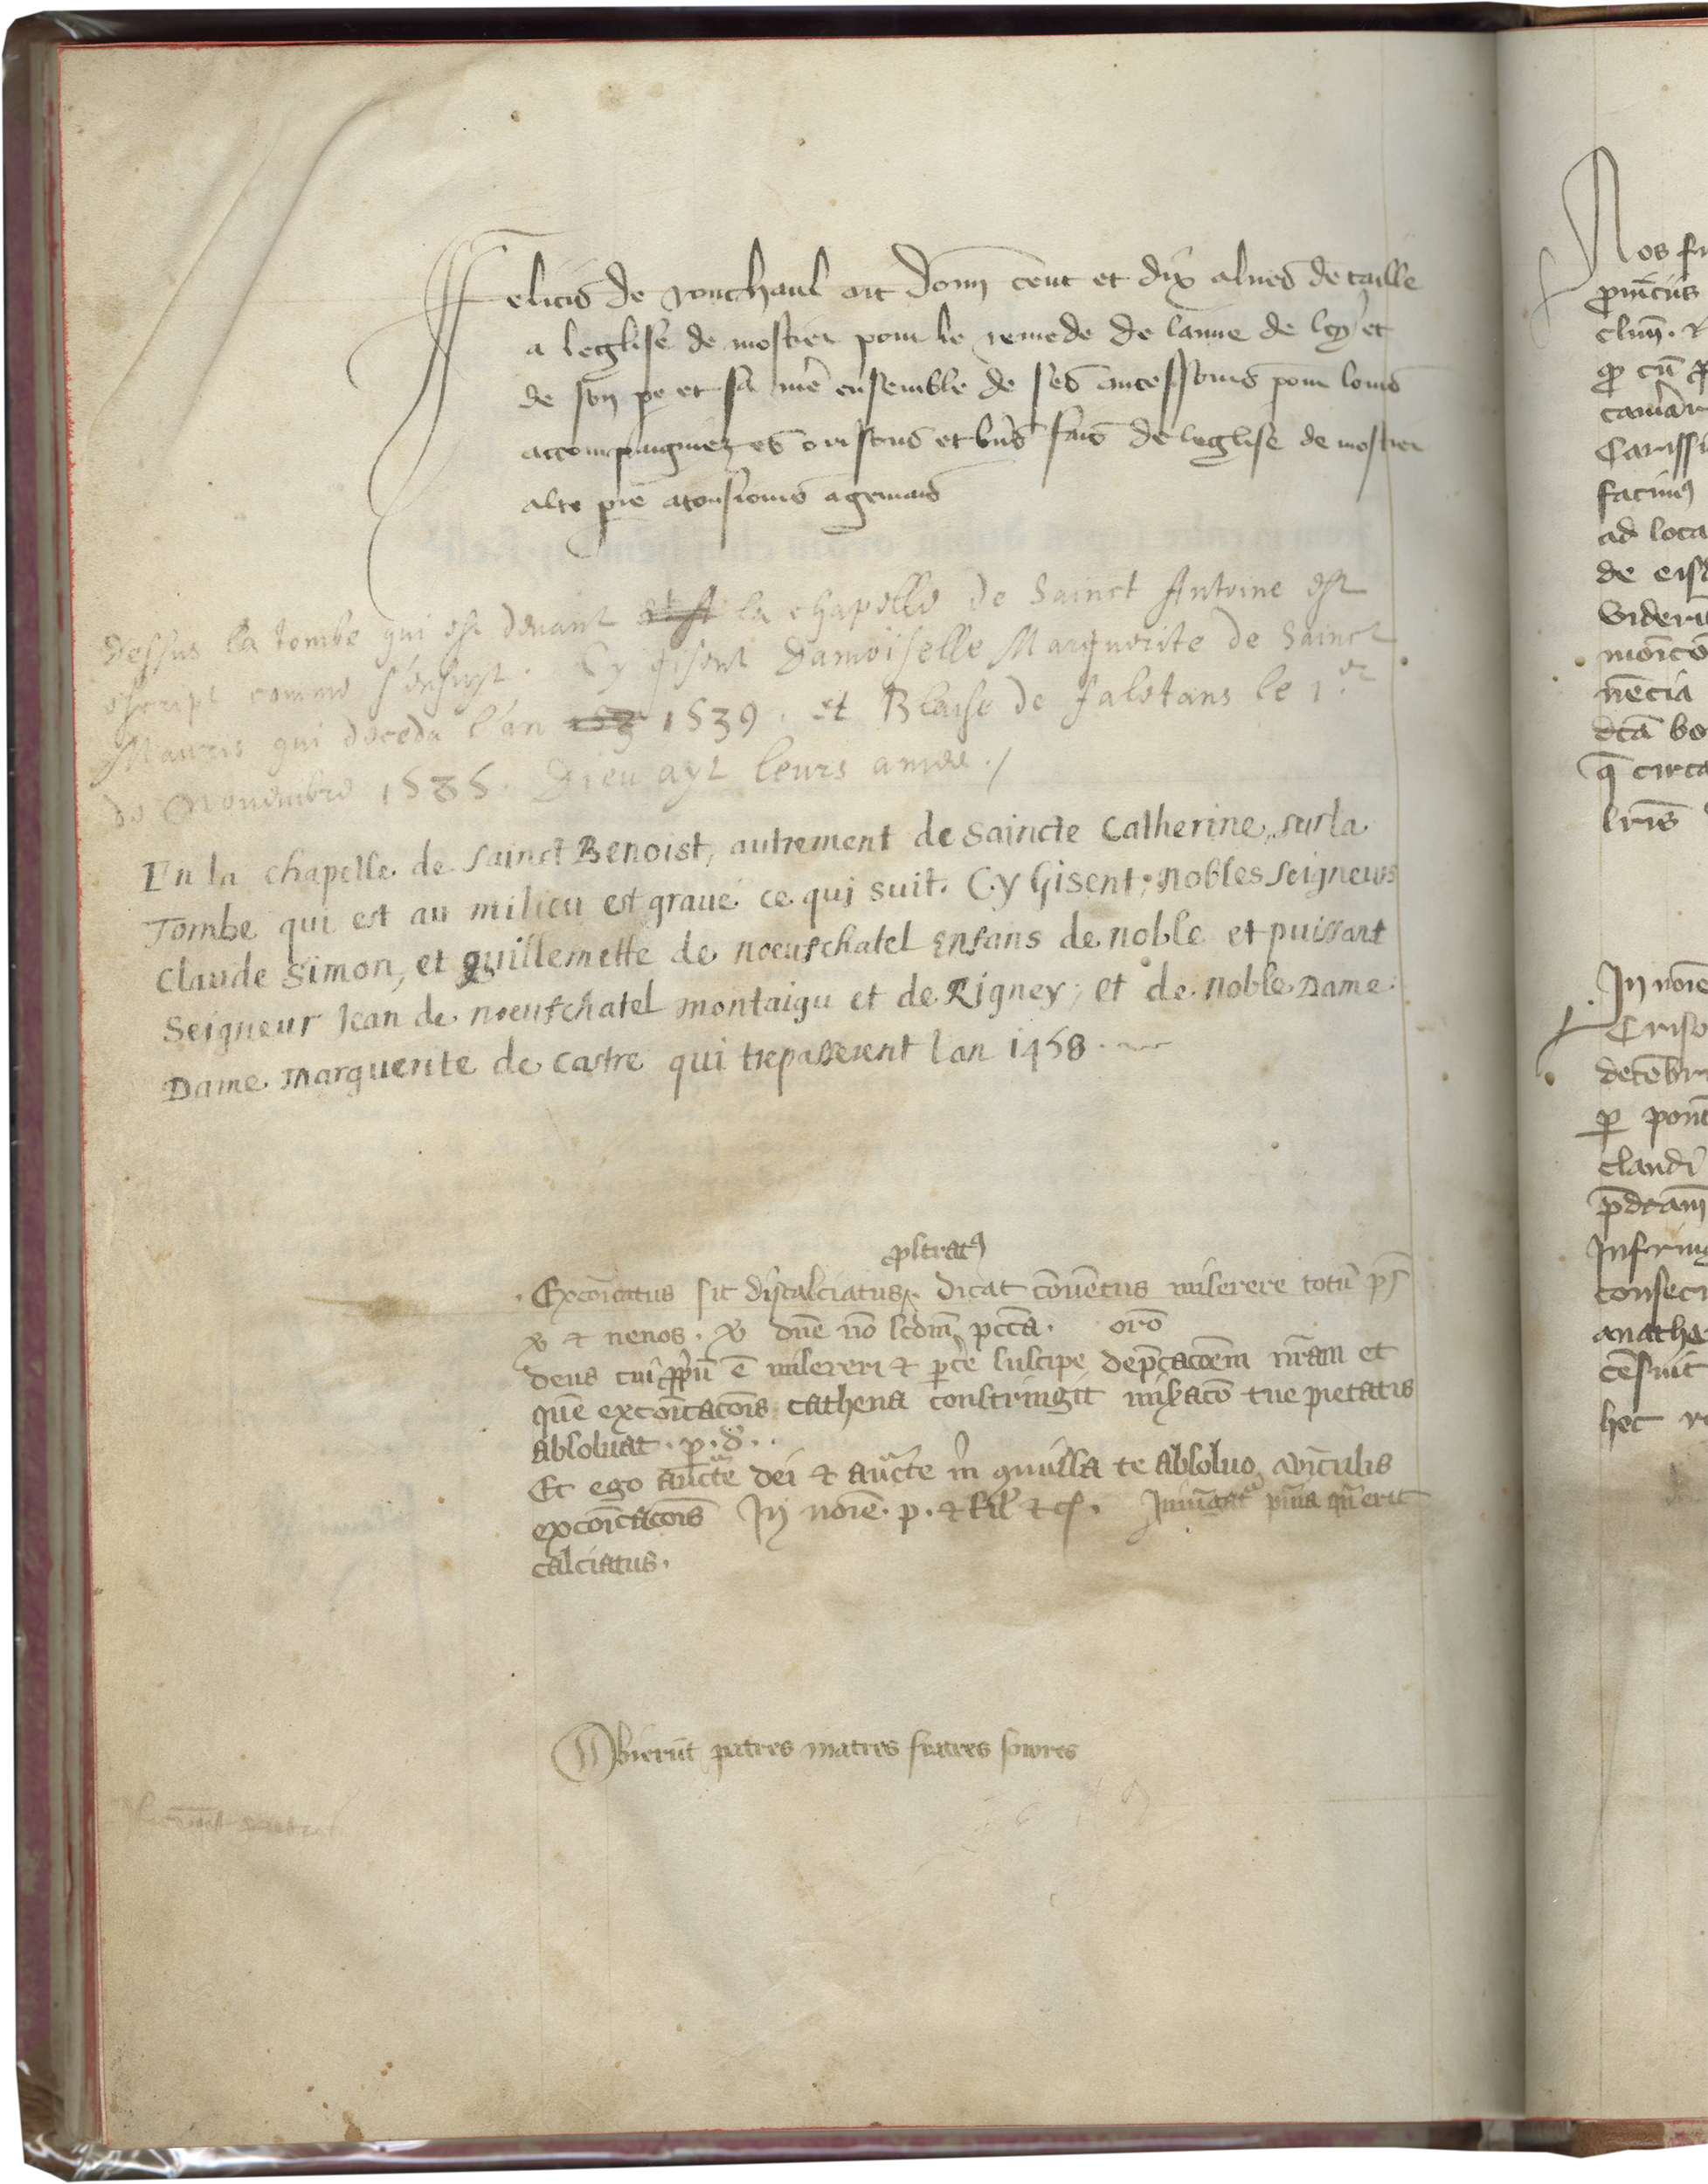 Felicis de vonchaul ait donn cent et dix alnes de taille
a leglise de mostier pour le remede de lame de ley et
de son pe et sa me ensemble de ses ancessours pour lours
accompaigniez es orisons et bns fais de leglise de mostier
alte pie
dessus la tombe qui est devant la chapelle de Sainct Antoine est
escript comme s'ensuyt. Cy gisent Damoiselle Marguerite de Sainct
Mauris qui deceda l'an 1539. et Blaise de faletans le 1.er
de Novembre 1535. Dieu ayt leurs ames./
En la chapelle de sainct Benoist, autrement de saincte Catherine, sur la
Tombe qui est au milieu est graué ce qui suit. Cy Gisent, nobles seigneurs
Claude Simon, et guillemette de noeufchatel Enfans de noble et puissant
Seigneur Jean de noeufchatel montaigu et de Rigney, et de noble Dame
Dame Marguerite de castre qui trepasserent lan 1458.
pstrat9
Excoicatus sit discalciatus. dicat coventus miserere totu ps
v et ne nos. v dne no scdm pcca. oro
deus cui ppiu e misereri et pce suscipe depcacoem nram et
que excoicacois cathena constringit misaco tue pietatis
absoluat. p. d.
Et ego aucte dei et aucte m qmissa te absoluo a viculis
excoicacois In noie. p. et fil et s. Iniugat pnia qn erit
calciatus.
Obierut patres matres fratres sorores
Nos fr
puicus
clun. et
camar
Carissi
facim9
ad loca
de eisd
videri
necia
dca bo
q circa
lris
In noie
Criso
decebri
p pont
claudi
pdcam
Infering
consecr
anathe
cesuit
hec re